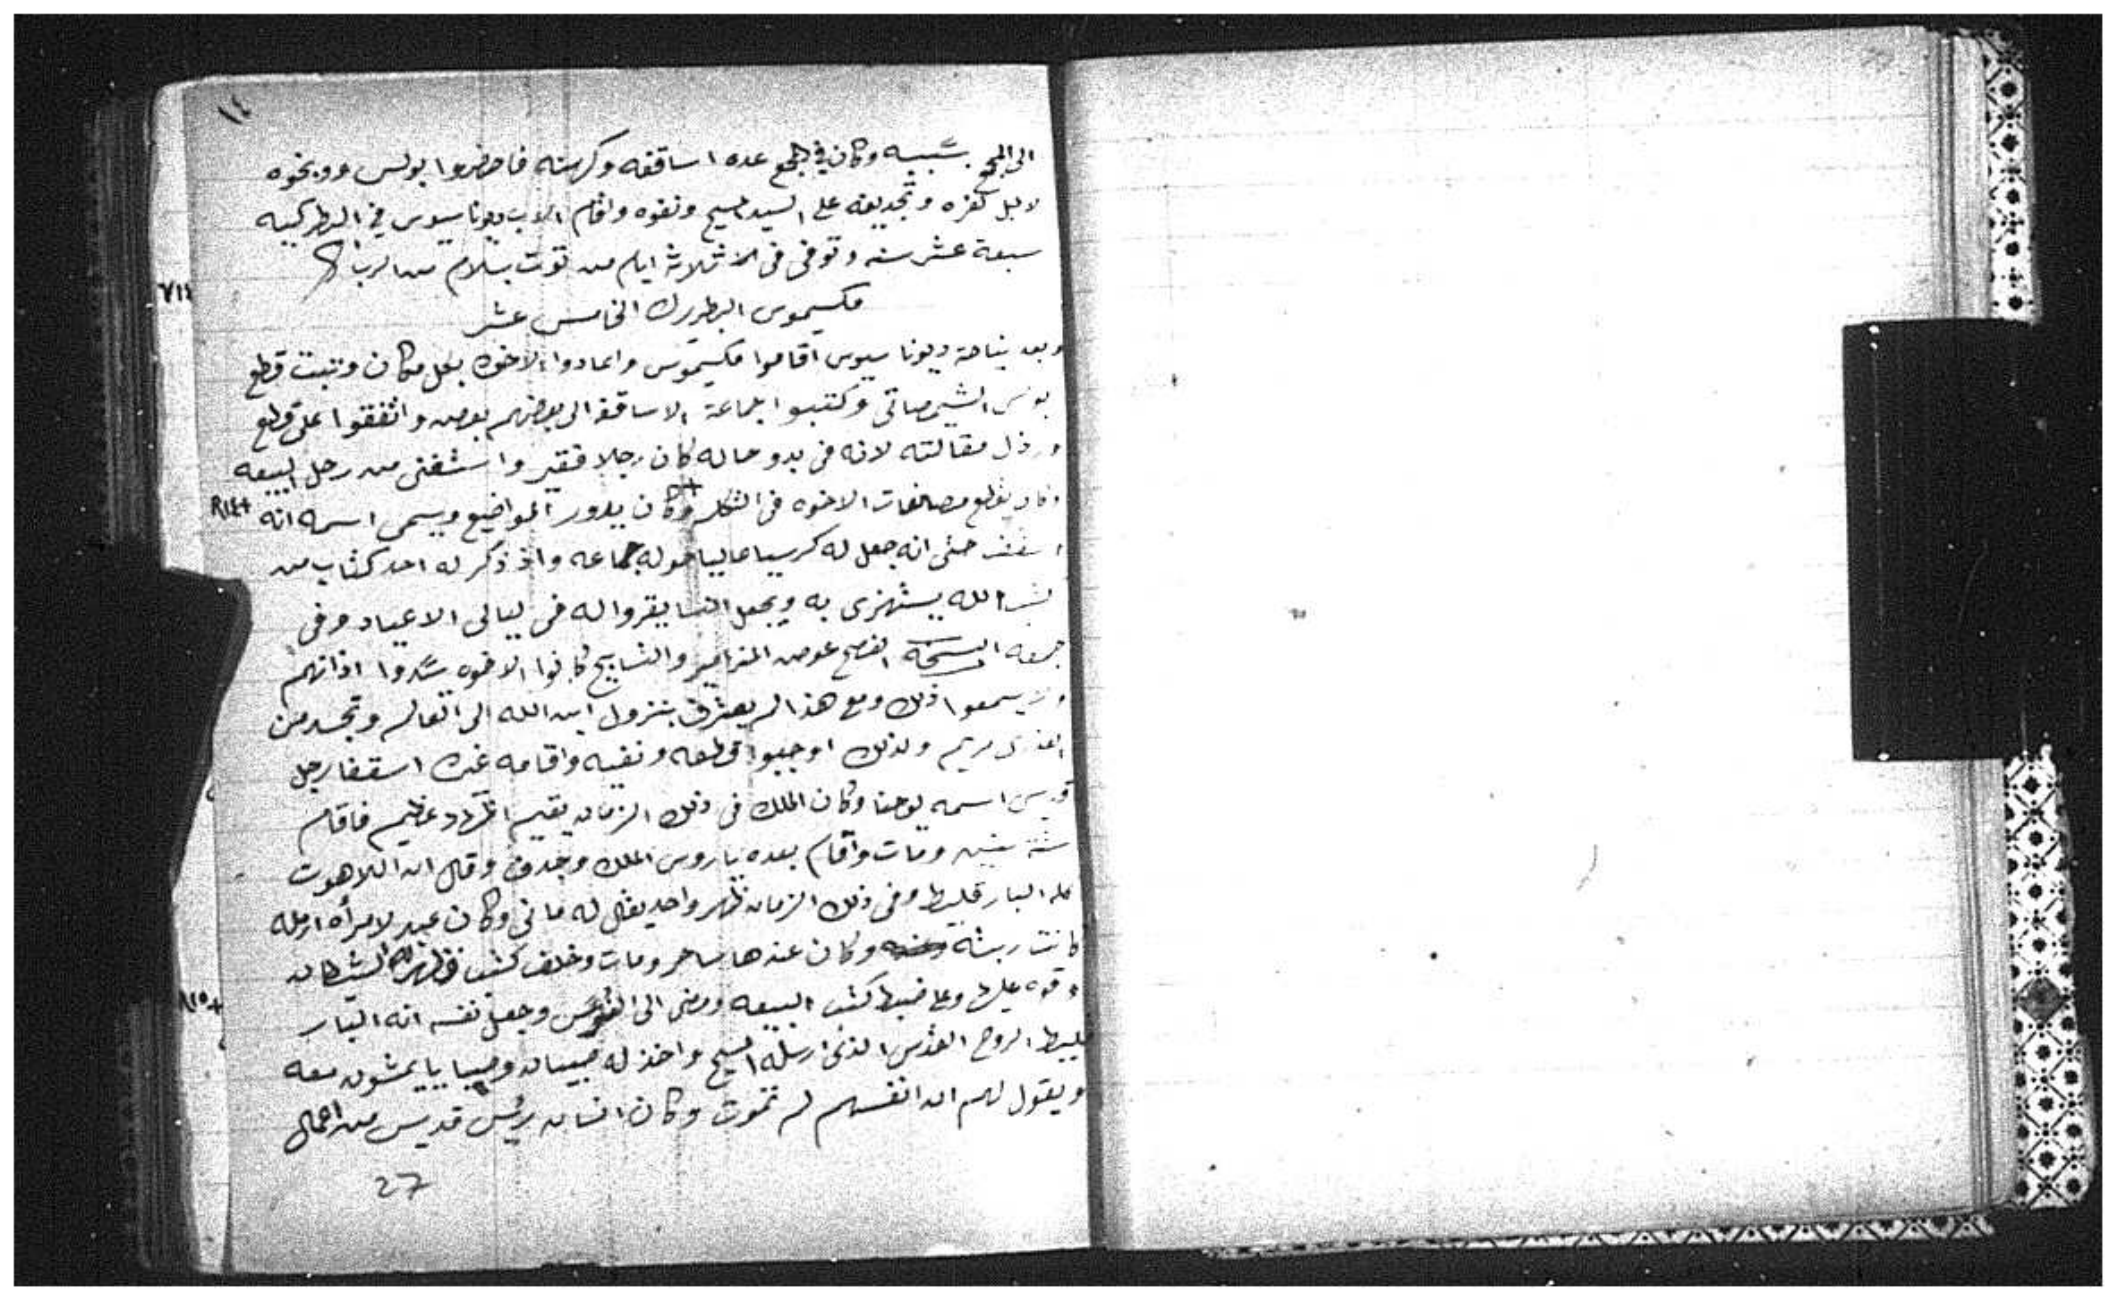 ١٤
الى المجمع بسببه وكان في المجمع عده اساقفه وكهنه فاحضروا بولس ووبخوه
لاجل كفره وتجديفه على السيد المسيح ونفوه واقام الاب ديوناسيوس في البطركيه
سبعة عشر سنه وتوفى فى ثلاثة ايام من توت بسلام من الرب
مكسيموس البطررك الخامس عشر
وبعد نياحة ديوناسيوس اقاموا مكسيموس واعادوا الاخوه بكل مكان وتبت قطع
بولس الشيمصاتى وكتبوا جماعة الاساقفه الى بعضهم بعض واتفقوا على قطع
ورذل مقالته لانه فى بدو حاله كان رجلا فقير واستغنى من رحل البيعه
وكان يقطع مصانعات الاخوه فى الكلام وكان يدور المواضيع ويسمى اسمه انه
اسقف حتى انه جعل له كرسيا عاليا حوله جماعه واذ ذكر له احد كتاب من
كتب الله يستهزى به ويجعل النسا يقروا له فى ليالى الاعياد وفى
جمعه الفصح عوض المزامير والتسابيح كانوا الاخوه سدوا اذانهم
ولا يسمعوا ذلك ومع هذا لم يعترف بنزول ابن الله الى العالم وتجسد من
العذرى مريم ولذلك اوجبوا قطعه ونفيه واقامه غيره اسقفا رجل
قديس اسمه يوحنا وكان الملك فى ذلك الزمان يقيم اظهاد عظيم فاقام
ستة سنين ومات واقام بعده ياروس الملك وجدف وقال ان اللاهوت
البارقليط وفى ذلك الزمان ظهر واحد يقال له مانى وكان عبد لامرأه ارمله
كانت ريسة وكان عندها ساحر ومات وخلف كتب فظهر له الشيطان
وقوه عليها وعلى ضبط كتب البيعه ومضى الى الفرس وجعل نفسه انه البار
قليط الروح القدس الذى ارسله المسيح واخذ له صبيان وصبايا يمشون معه
ويقول لهم ان انفسهم لم تموت وكان انسان ريس قديس من اعمال
27